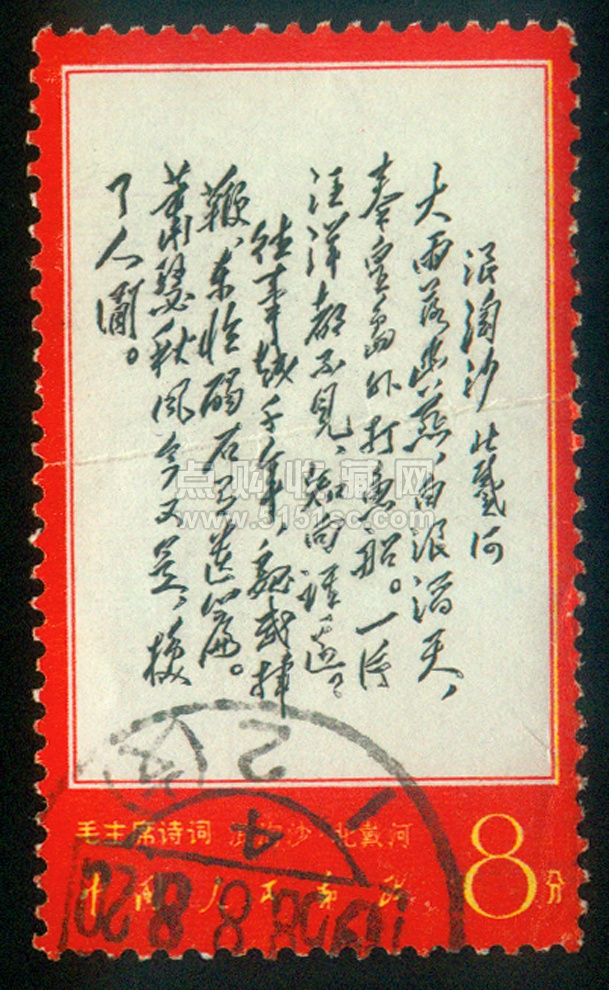 浪淘沙 北戴河
大雨落幽燕、白浪滔天、
秦皇岛外打鱼船。一片
汪洋都不见、知向谁边？
往事越千年、魏武挥
鞭、东临碣石有遗篇。
萧瑟秋风今又是、换
了人间。
点购收藏网
www.5151sc.com
毛主席诗词 浪淘沙 北戴河
中国人民邮政
8分